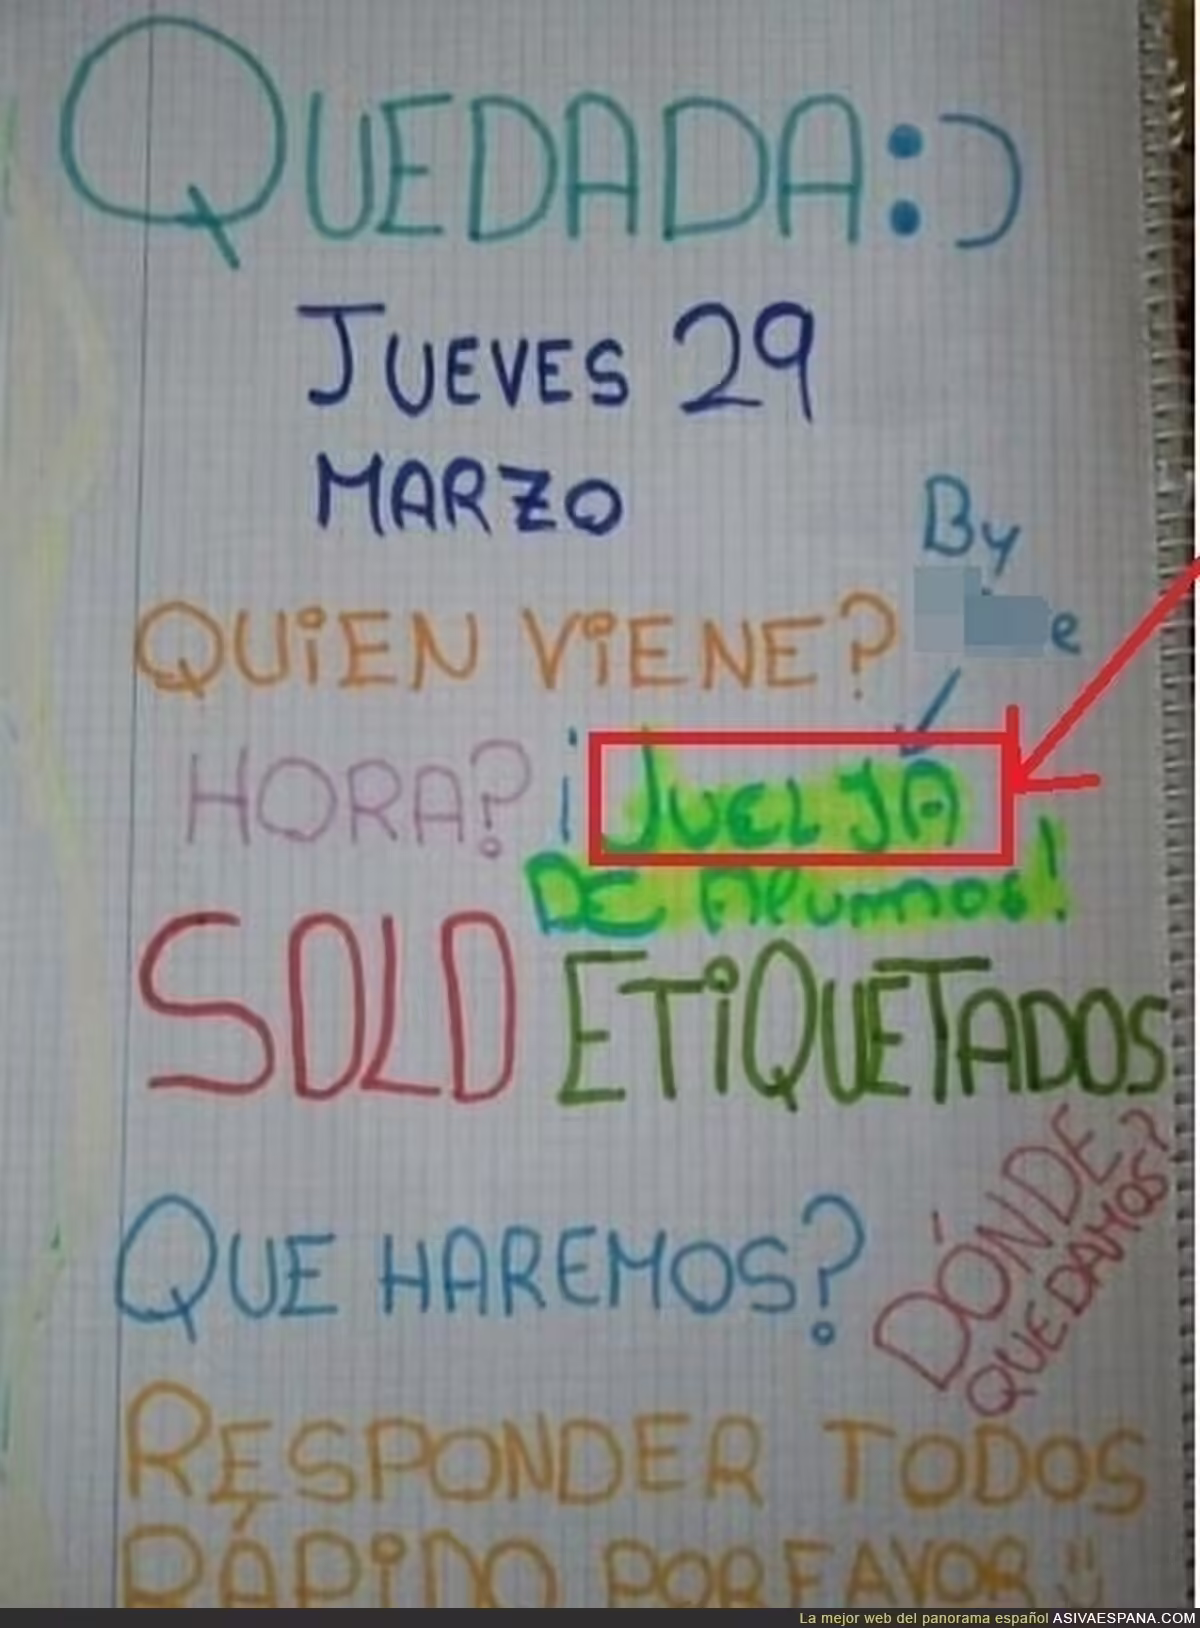 QUEDADA:)
JUEVES 29
MARZO
By
e
QUiEN ViENE?
HORA? ¡JUELJA
DE Alumnos!
SOLO ETiQUETADOS
QUE HAREMOS?
DÓNDE
QUEDAMOS?
RESPONDER TODOS
RÁPiDO POR FAVOR :)
La mejor web del panorama español ASIVAESPANA.COM